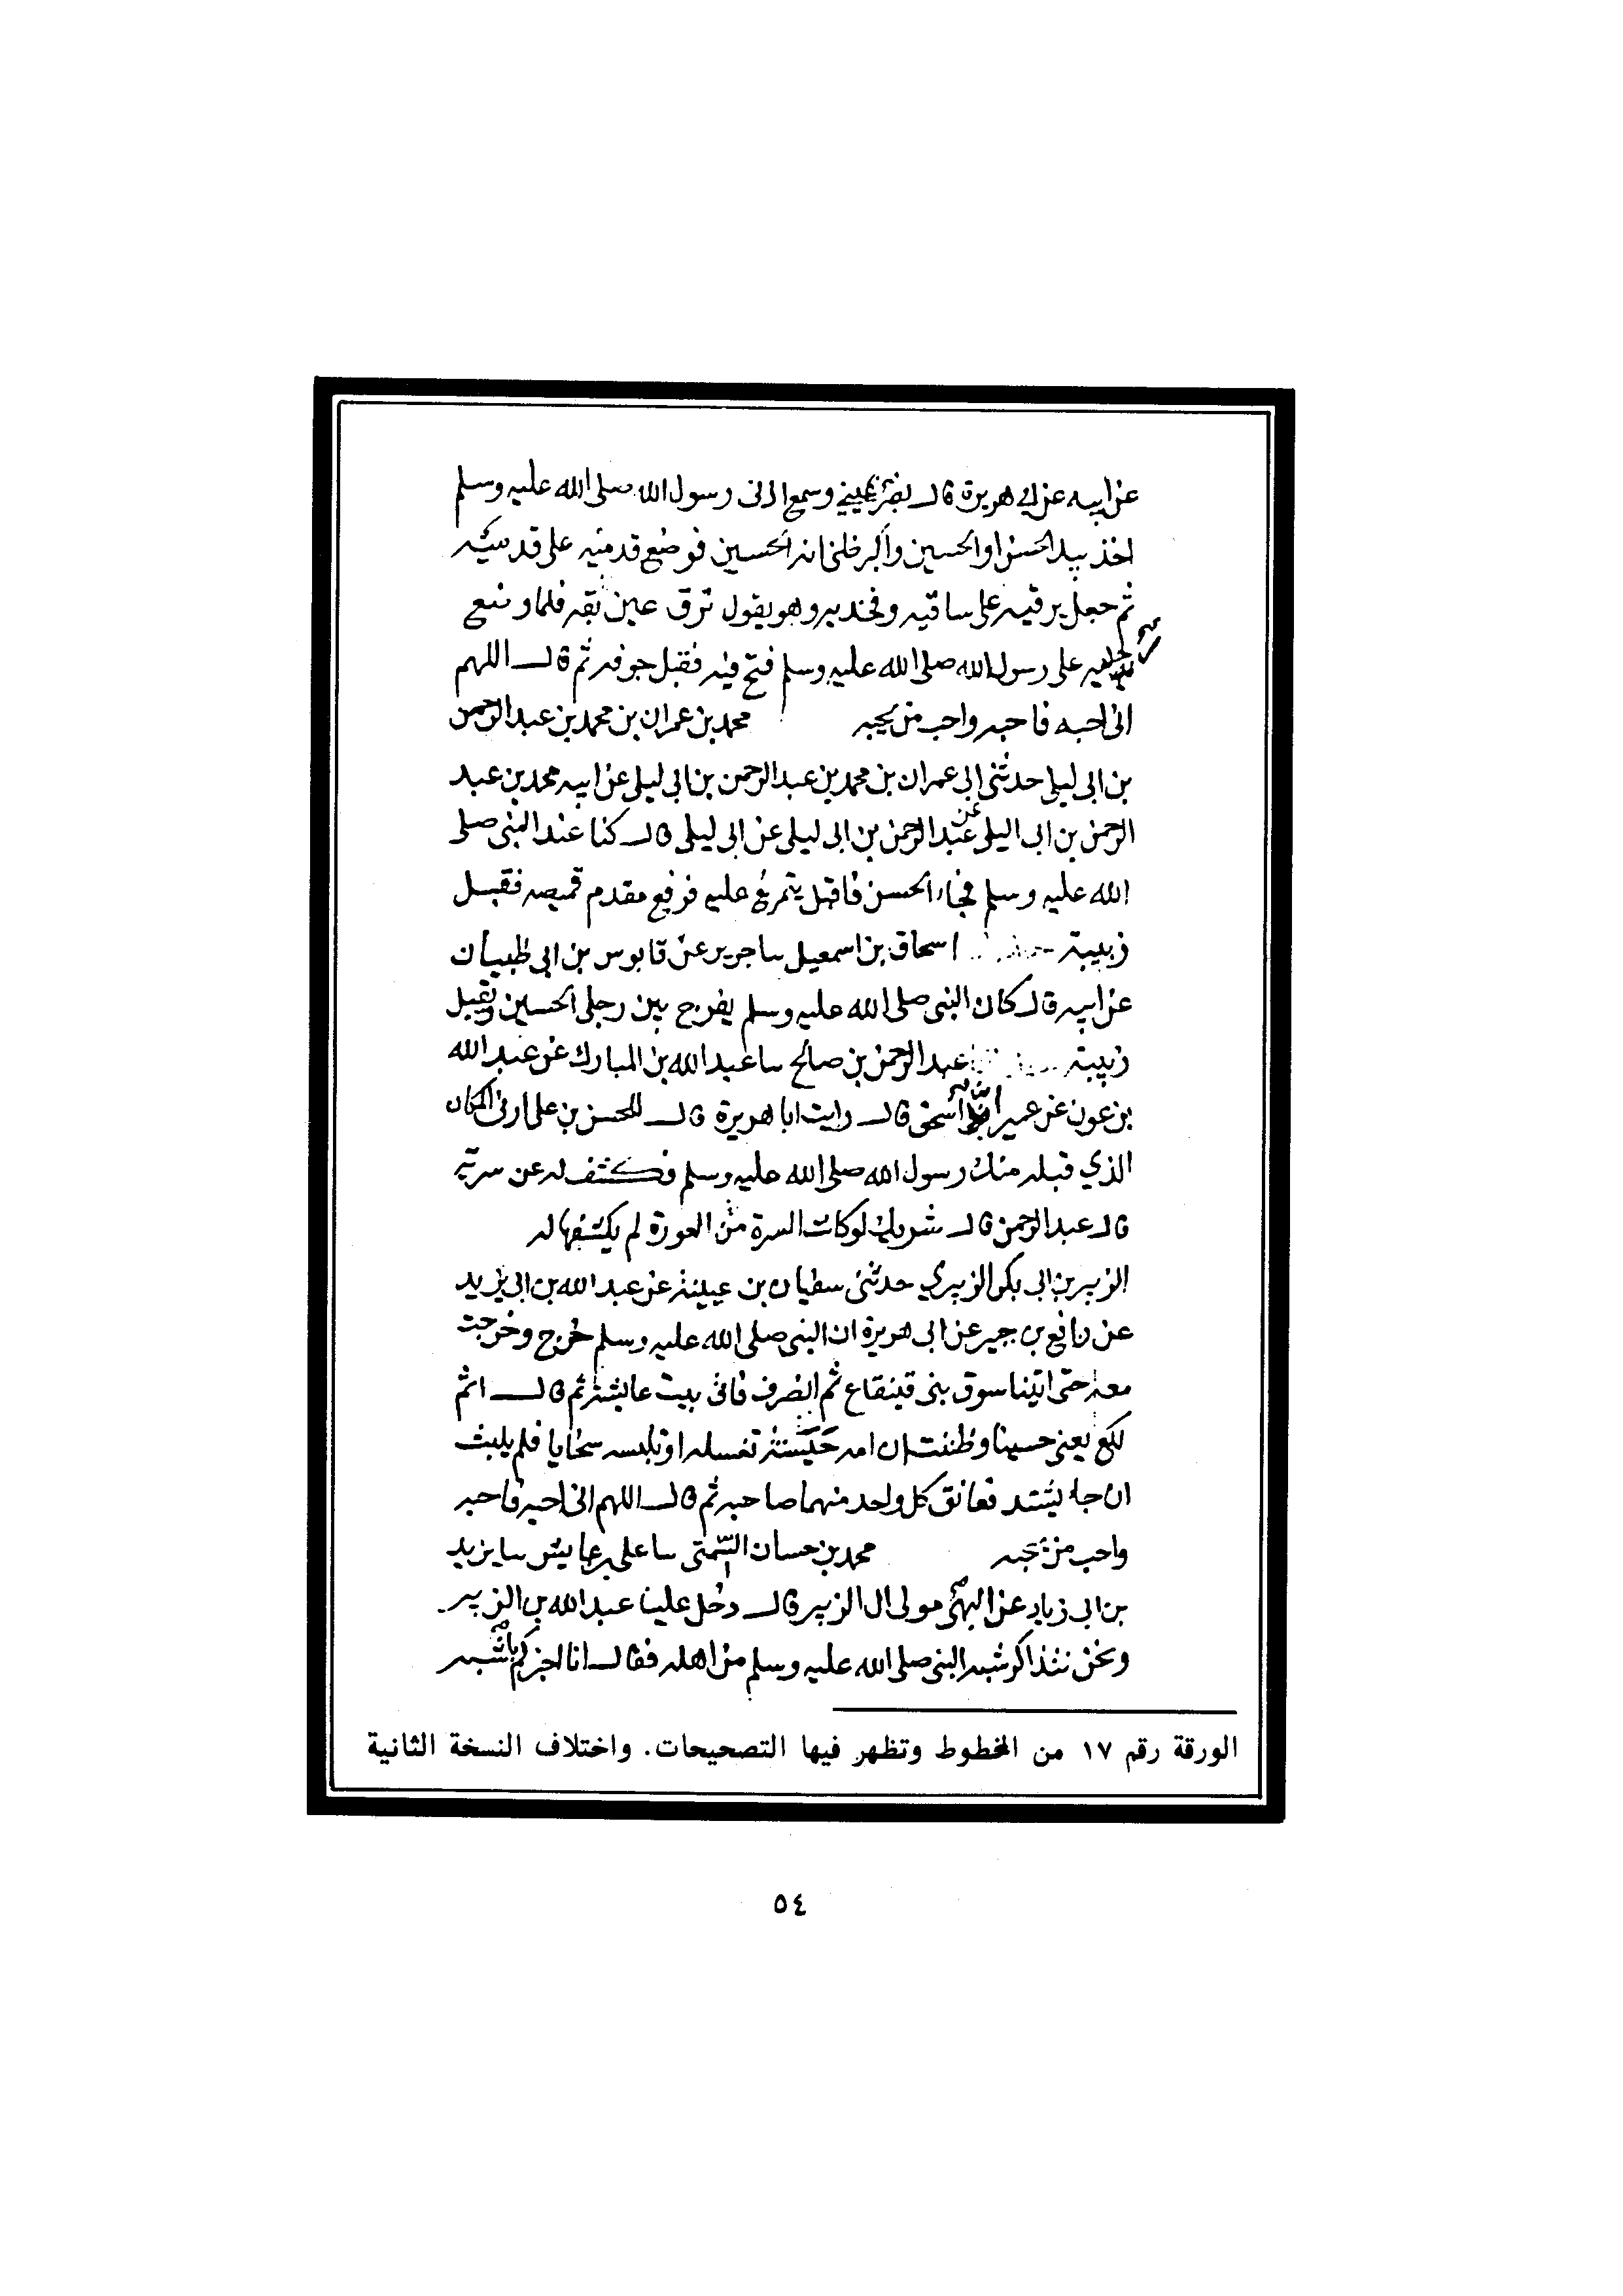 عن ابيه عن ابي هريرة قال بصر عيني وسمع اذني رسول الله صلى الله عليه وسلم
اخذ بيد الحسن او الحسين واكبر ظني انه الحسين فوضع قدميه على قدميه
ثم جعل يرقيه على ساقيه وفخذيه وهو يقول ترق عين بقه فلما وضع
على رسول الله صلى الله عليه وسلم فتح فيه فقبل جوفه ثم قال اللهم
اني احبه فاحبه واحب من يحبه محمد بن عمران بن محمد بن عبد الرحمن
بن ابي ليلى حدثني ابي عمران بن محمد بن عبد الرحمن بن ابي ليلى عن ابيه محمد بن عبد
الرحمن بن ابي اليلى عن عبد الرحمن بن ابي ليلى عن ابي ليلى قال كنا عند النبي صلى
الله عليه وسلم فجاء الحسن فاقبل يتمرغ عليه فرفع مقدم قميصه فقبل
زبيبته اسحاق بن اسمعيل سا جرير عن قابوس بن ابي ظبيان
عن ابيه قال كان النبي صلى الله عليه وسلم يفرج بين رجلي الحسين ويقبل
زبيبته عبد الرحمن بن صالح سا عبد الله بن المبارك عن عبد الله
بن عون عن عمير اسحق قال رايت ابا هريرة قال للحسن بن علي ارني المكان
الذي قبله منك رسول الله صلى الله عليه وسلم فكشف له عن سرته
قال عبد الرحمن قال شريك لو كانت السرة من العورة لم يكشفها له
الزبير بن ابي بكر الزبيري حدثني سفيان بن عيينة عن عبد الله بن ابي يزيد
عن نافع بن جبير عن ابي هريرة ان النبي صلى الله عليه وسلم خرج وخرجت
معه حتى اتينا سوق بني قينقاع ثم انصرف فاتى بيت عايشة ثم قال اثم
لكع يعني حسينا وظننت ان امه حبسته تغسله او تلبسه سخابا فلم يلبث
ان جاء يشتد فعانق كل واحد منهما صاحبه ثم قال اللهم اني احبه فاحبه
واحب من يحبه محمد بن حسان السمتي سا علي بن عابس سا يزيد
بن ابي زياد عن البهي مولى ال الزبير قال دخل علينا عبد الله بن الزبير
ونحن نتذاكر شبه النبي صلى الله عليه وسلم من اهله فقال انا اخبركم باشبه
الورقة رقم ١٧ من المخطوط وتظهر فيها التصحيحات. واختلاف النسخة الثانية
٥٤